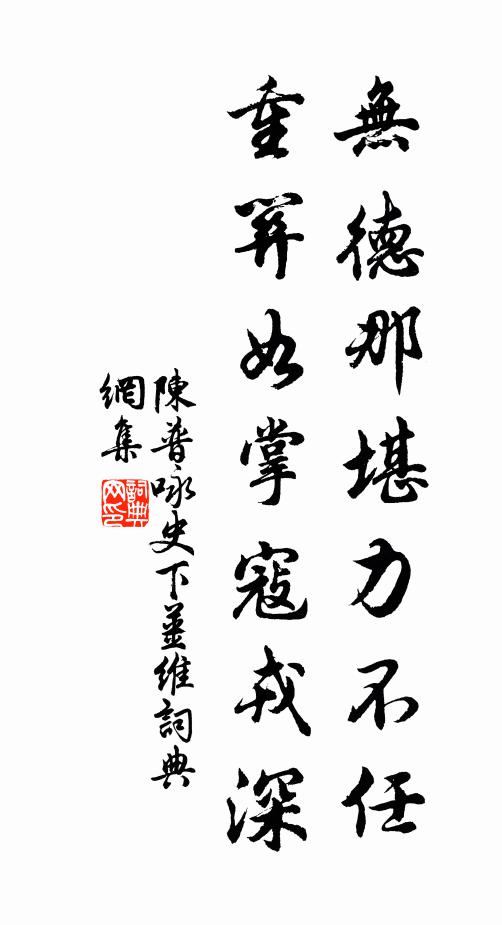 無德那堪力不任
重關如掌寇戎深
陳普咏史下薑維詞典
網集
詞典網印